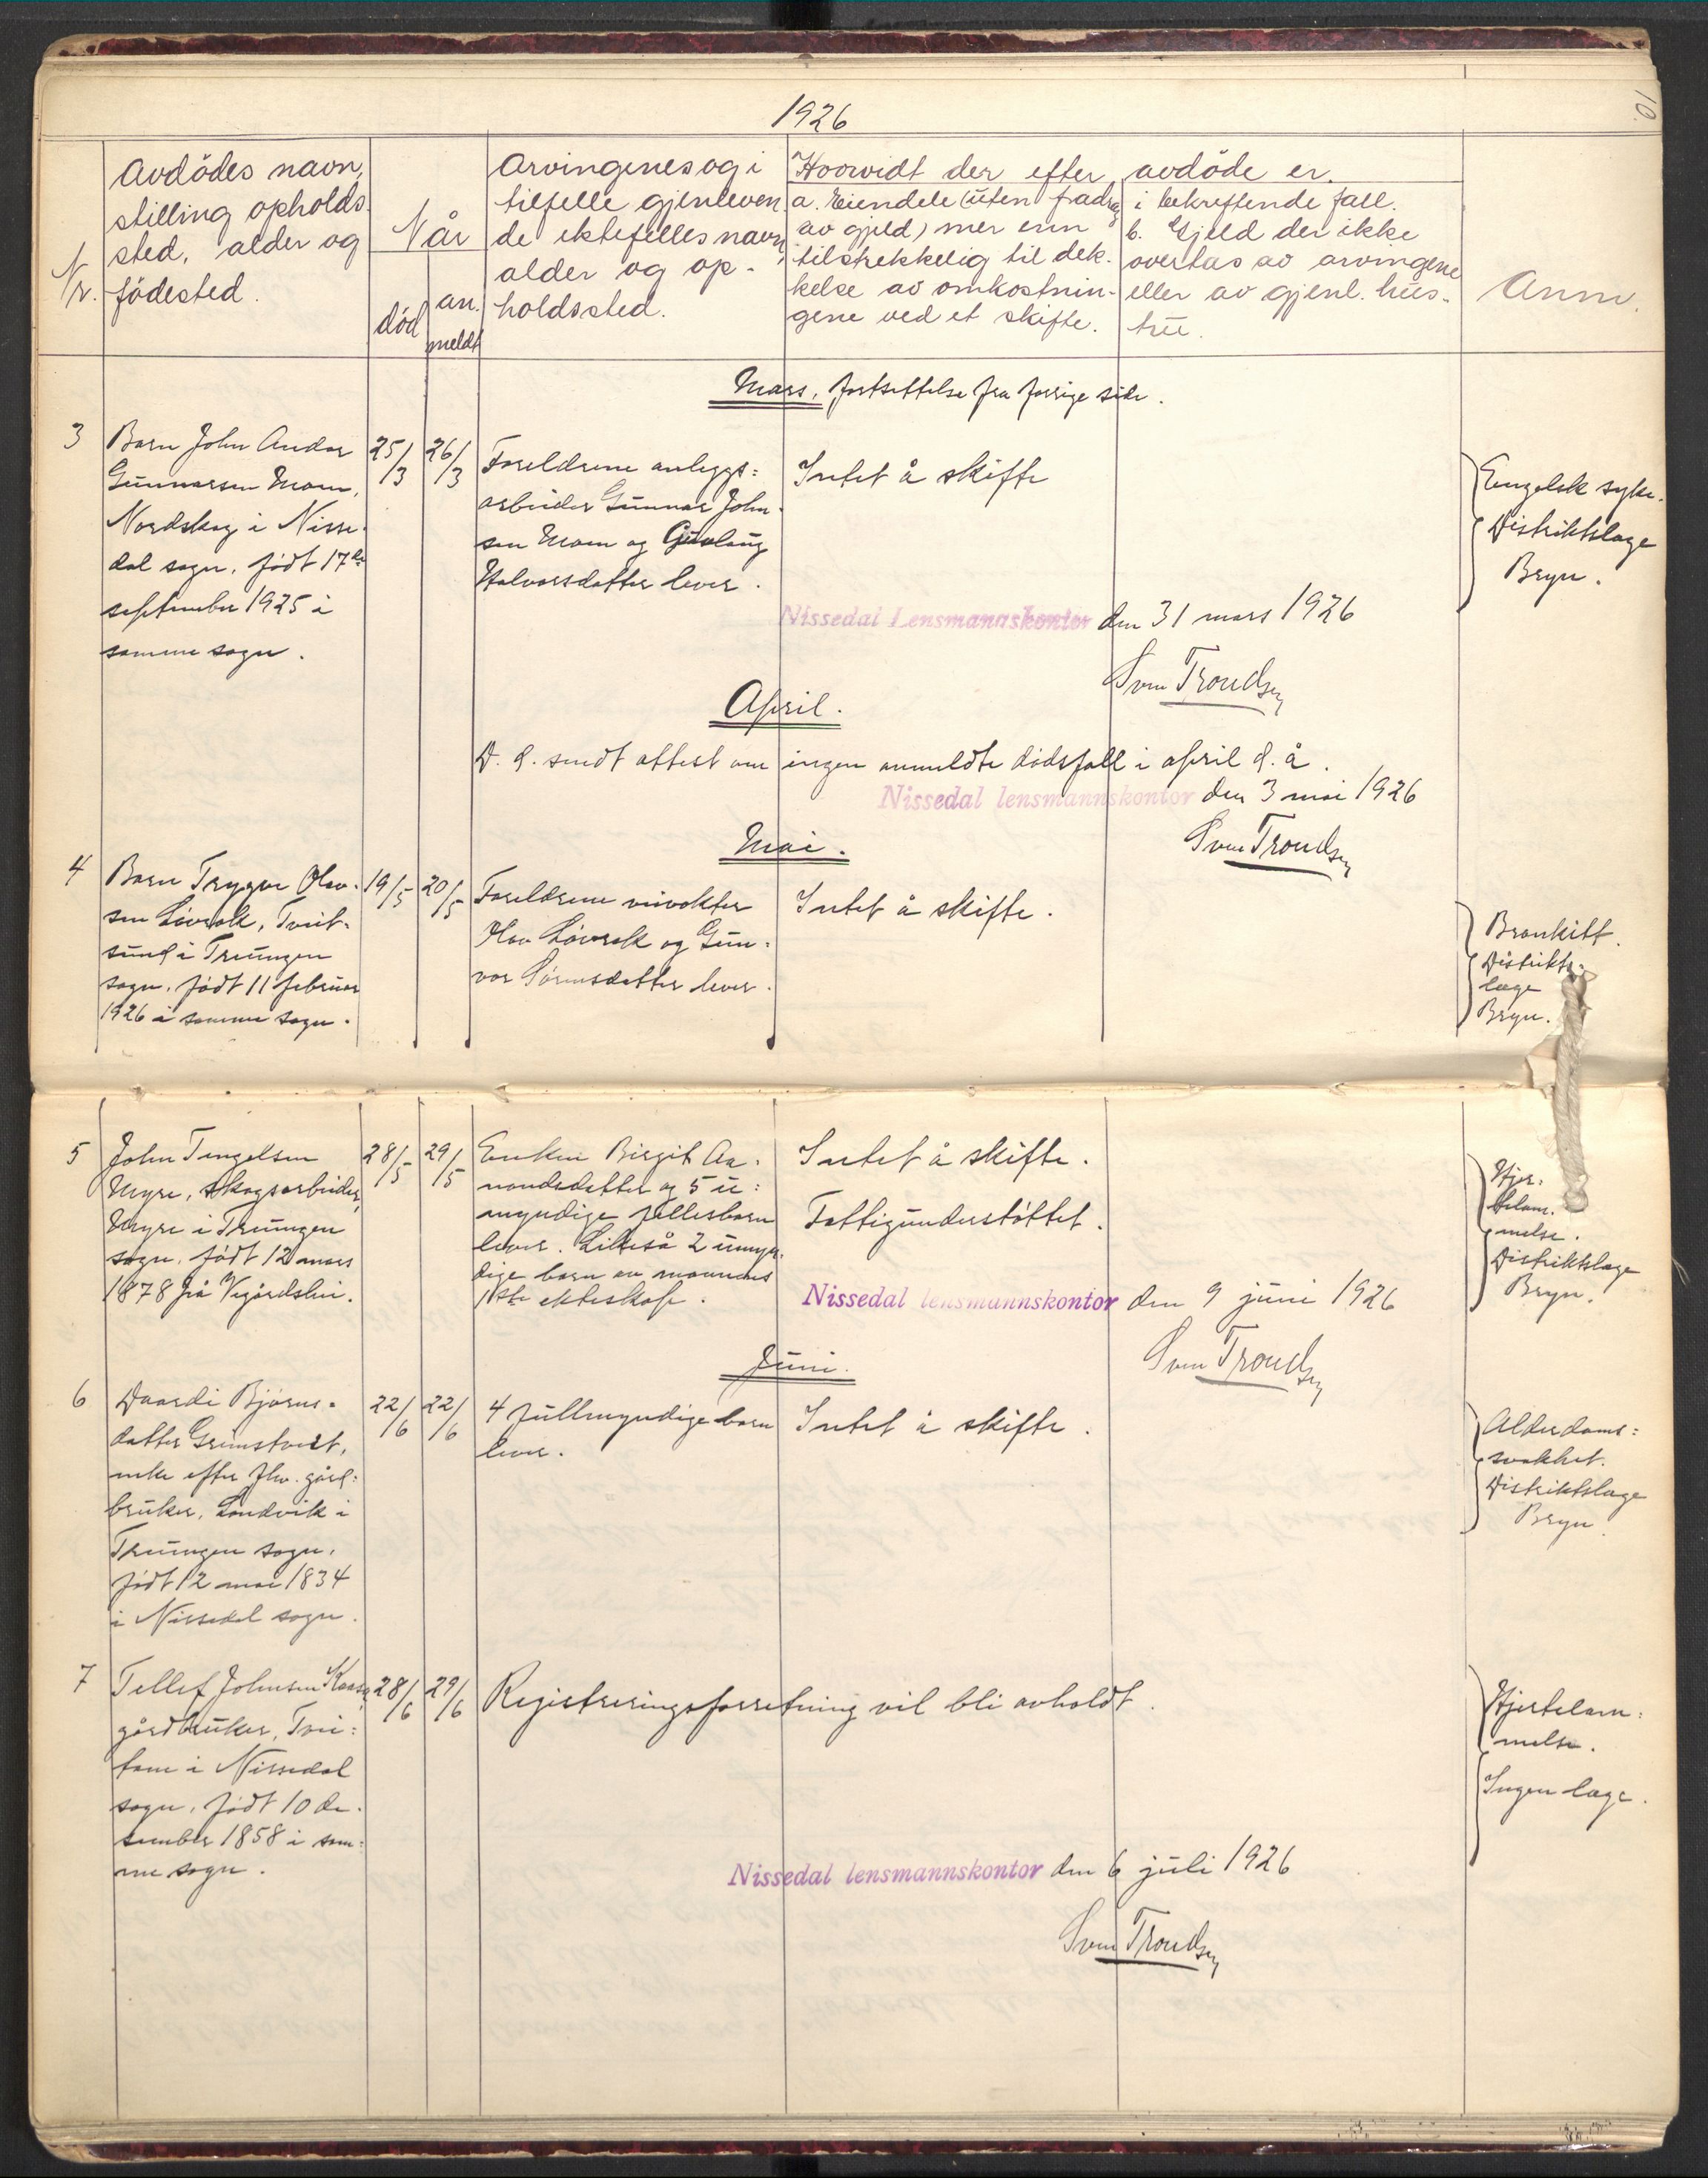 10.
1926
Nr.
Avdødes navn,
stilling opholds-
sted, alder og
fødested.
Når
død
an.
meldt
Arvingenes og i
tilfelle gjenleven
de ektefelles navn,
alder og op-
holdssted.
Hoorvidt der efter avdøde er.
a. Eiendele (uten fradrag
av gjeld) mer enn
tilstrekkelig til dek-
kelse av omkostnin-
gene ved et skifte.
i bekreftende fall.
b. Gjeld der ikke
overtas av arvingene
eller av gjenl. hus-
tru.
Anm.
Mars, fortsettelse fra forrige side.
3
Barn John Andor
Gunnarsen Moen,
Nordskog i Nisse-
dal sogn, født 17de
september 1925 i
samme sogn.
25/3
26/3
Foreldrene anleggs=
arbeider Gunnar John-
sen Moen og Gunlaug
Halvorsdatter lever.
Intet å skifte
Engelsk syke.
Distriktslæge
Bryn.
Nissedal Lensmannskontor den 31 mars 1926
Sven Trondsen
April.
D. d. sendt attest om ingen anmeldte dødsfall i april d. å.
Nissedal lensmannskontor den 3 mai 1926
Sven Trondsen
Mai.
4
Barn Trygve Olav-
sen Løvrak, Tveit-
sund i Treungen
sogn, født 11 februar
1926 i samme sogn.
19/5
20/5
Foreldrene veivokter
Olav Løvrak og Gun=
vor Sørensdatter lever.
Intet å skifte.
Bronkitt.
Distrikts-
læge
Bryn.
5
John Tengelsen
Myre, skogsarbeider,
Myre i Treungen
sogn, født 12 mars
1878 på Vegårdshei.
28/5
29/5
Enken Birgit Aa-
nondsdatter og 5 u=
myndige fellesbarn
lever. Likeså 2 umyn-
dige barn av mannens
1ste ekteskap.
Intet å skifte.
Fattigunderstøttet.
Hjer=
telam-
melse.
Distriktslæge
Bryn.
Nissedal lensmannskontor den 9 juni 1926
Sven Trondsen
Juni.
6
Daardi Bjørns-
datter Grimstveit,
enke efter fhv. gård=
bruker, Sandvik i
Treungen sogn,
født 12 mai 1834
i Nissedal sogn.
22/6
22/6
4 fullmyndige barn
lever.
Intet å skifte.
Alderdoms=
svakhet.
Distriktslæge
Bryn.
7
Tellef Johnsen Kaasa,
gårdbruker, Tvei=
tane i Nissedal
sogn, født 10 de-
sember 1858 i sam=
me sogn.
28/6
29/6
Registreringsforretning vil bli avholdt.
Hjertelam=
melse.
Ingen læge.
Nissedal lensmannskontor den 6 juli 1926
Sven Trondsen